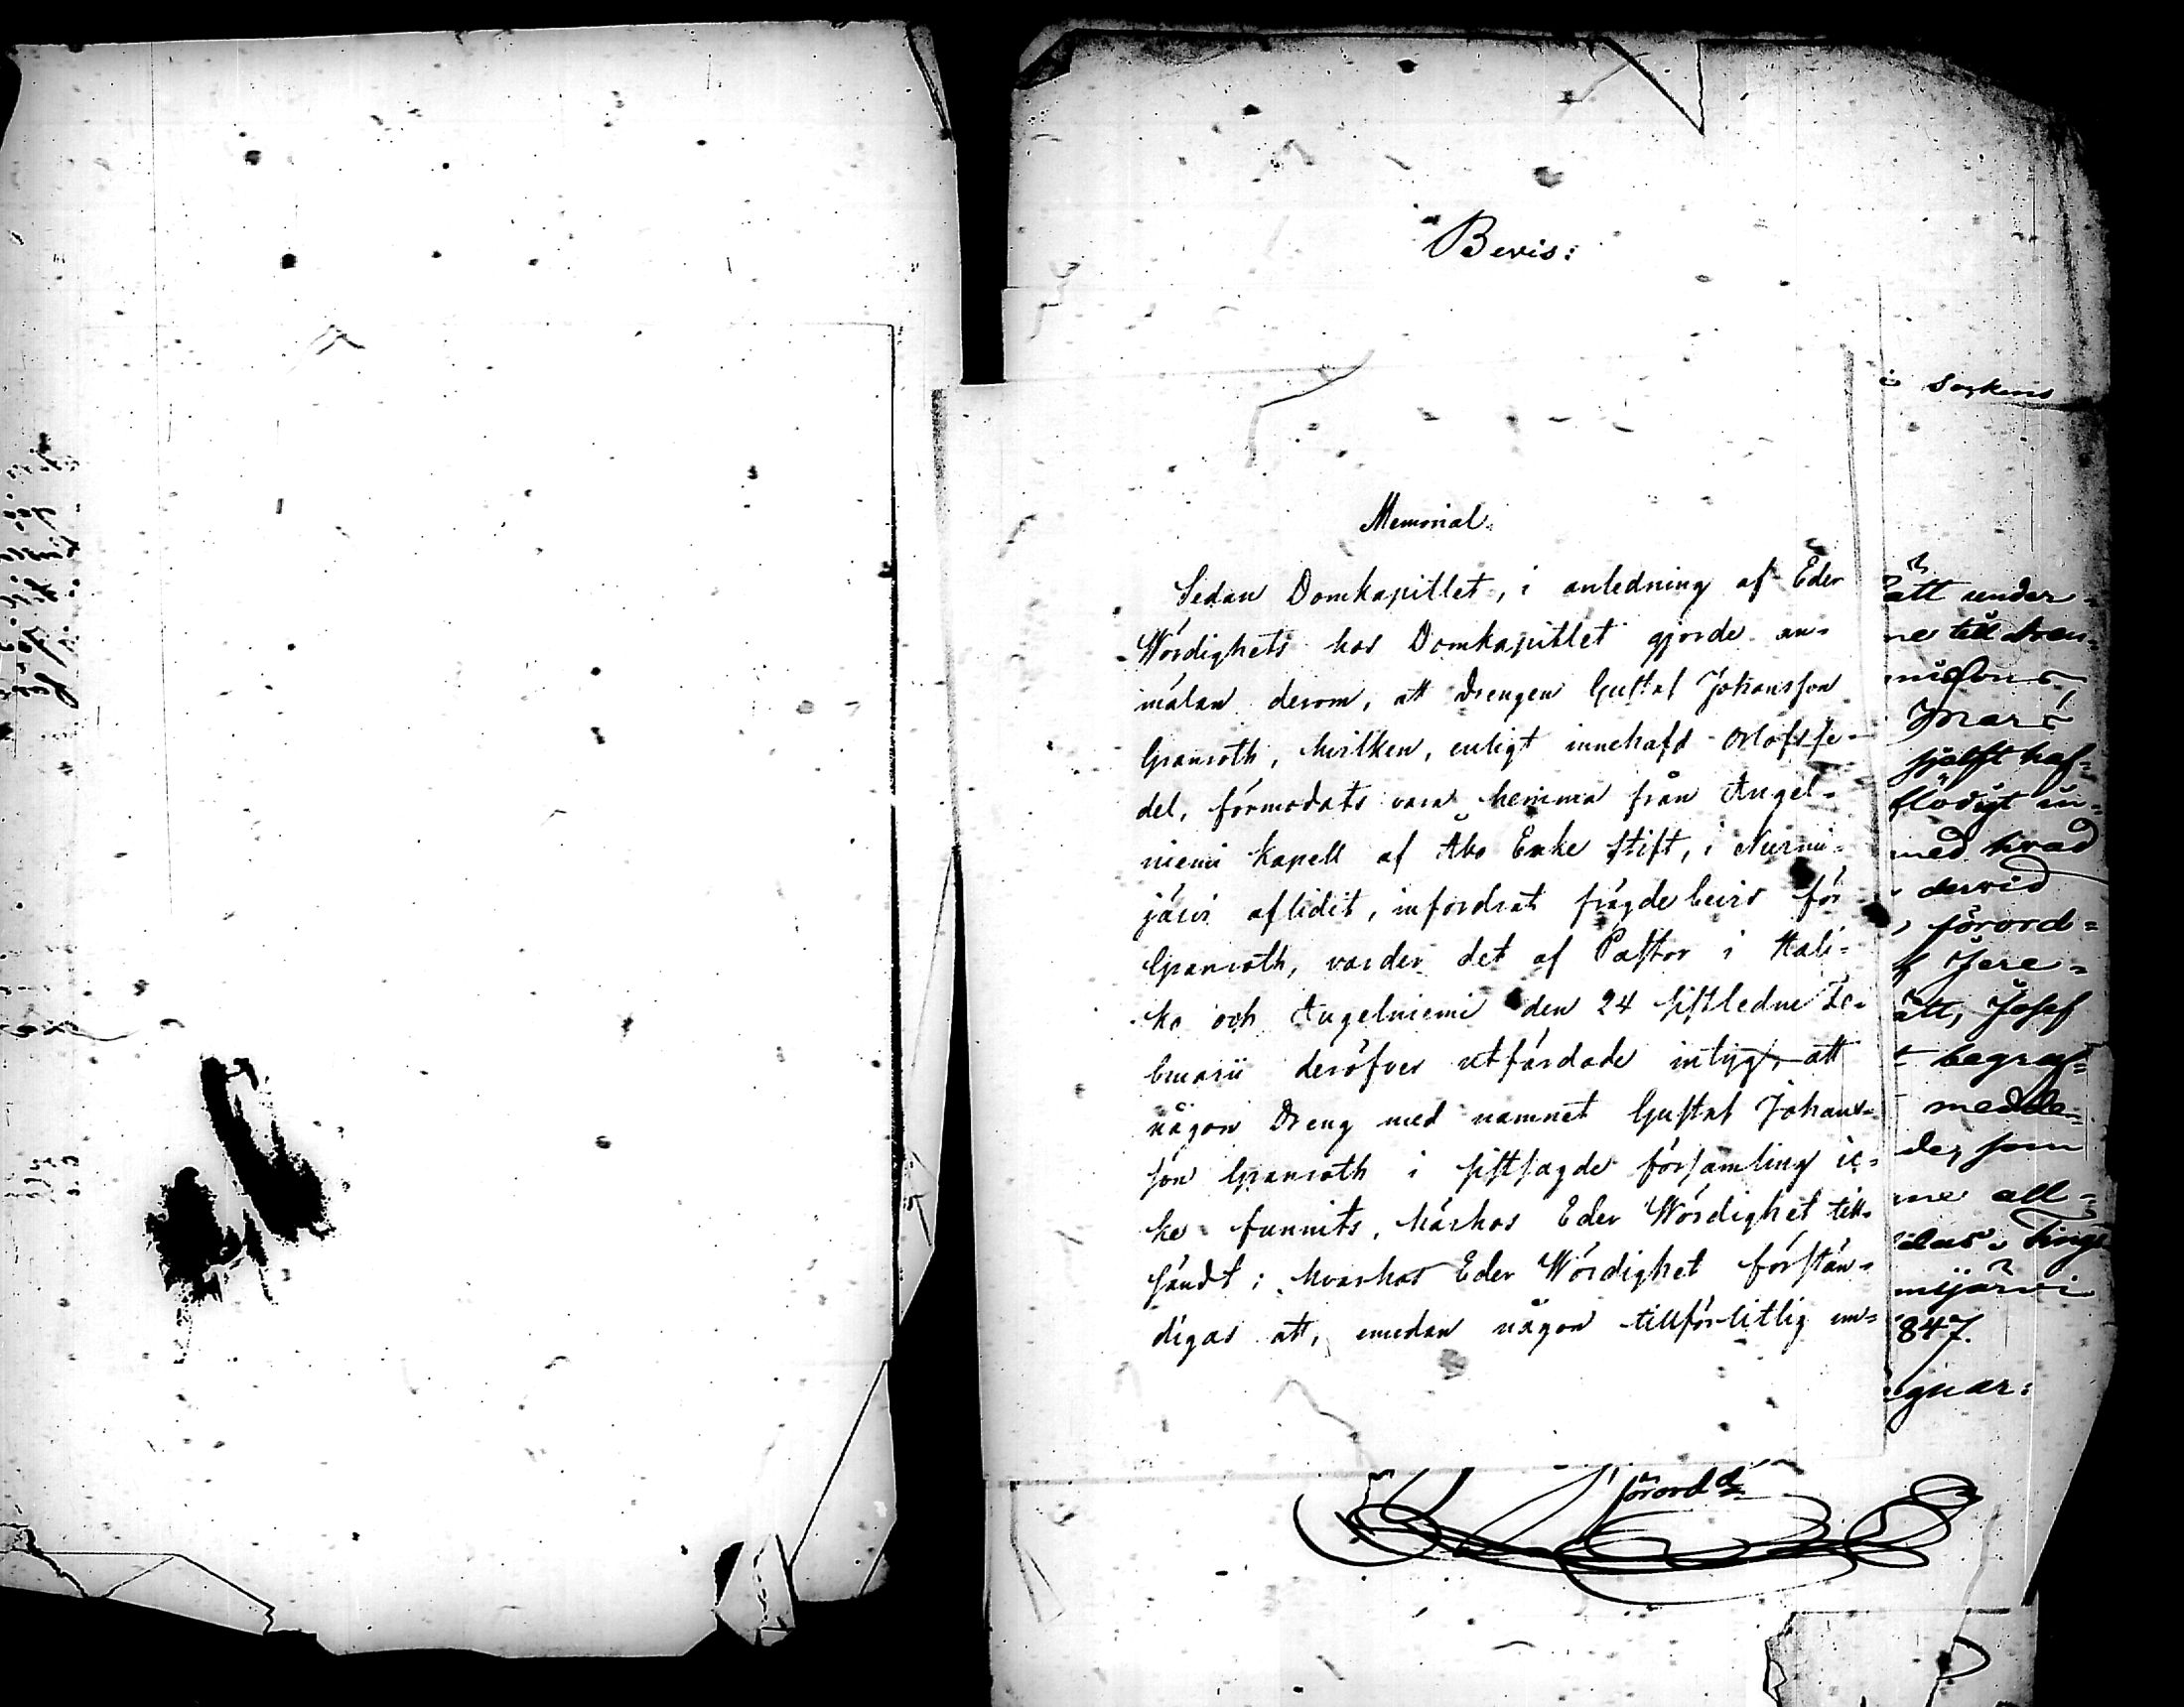 Bevis:
Memorial.
Sedan Domkapitlet, i anledning af Eder
Wördighets hos Domkapitlet gjorde an-
mälan derom, att drengen Gustaf Johansson
Granroth, hvilken, enligt innehafd Orlofsse-
del, förmodats vara hemma från Angel-
niemi Kapell af Åbo Erke Stift, i Nurmi-
järvi aflidit, infordrat frägdebevis för
Granroth, varder det af Pastor i Hali-
ko och Angelniemi den 24 sistledne Fe-
bruarii deröfver utfärdade intyg, att
någon Dreng med namnet Gustaf Johans-
son Granroth i sistsagde församling ic-
ke funnits, härhos Eder Wördighet till-
sändt; hvarhos Eder Wördighet förstän-
digas att, emedan någon tillförlitlig un-
i Sockens
att under-
ne till dren-
sjelft haf-
flödigt un-
med hvad
dervid
förord-
Jere-
ätt, Josef
begraf-
medde-
der, som
me all-
Tings
mijärvi
847.
gnar:
förordd